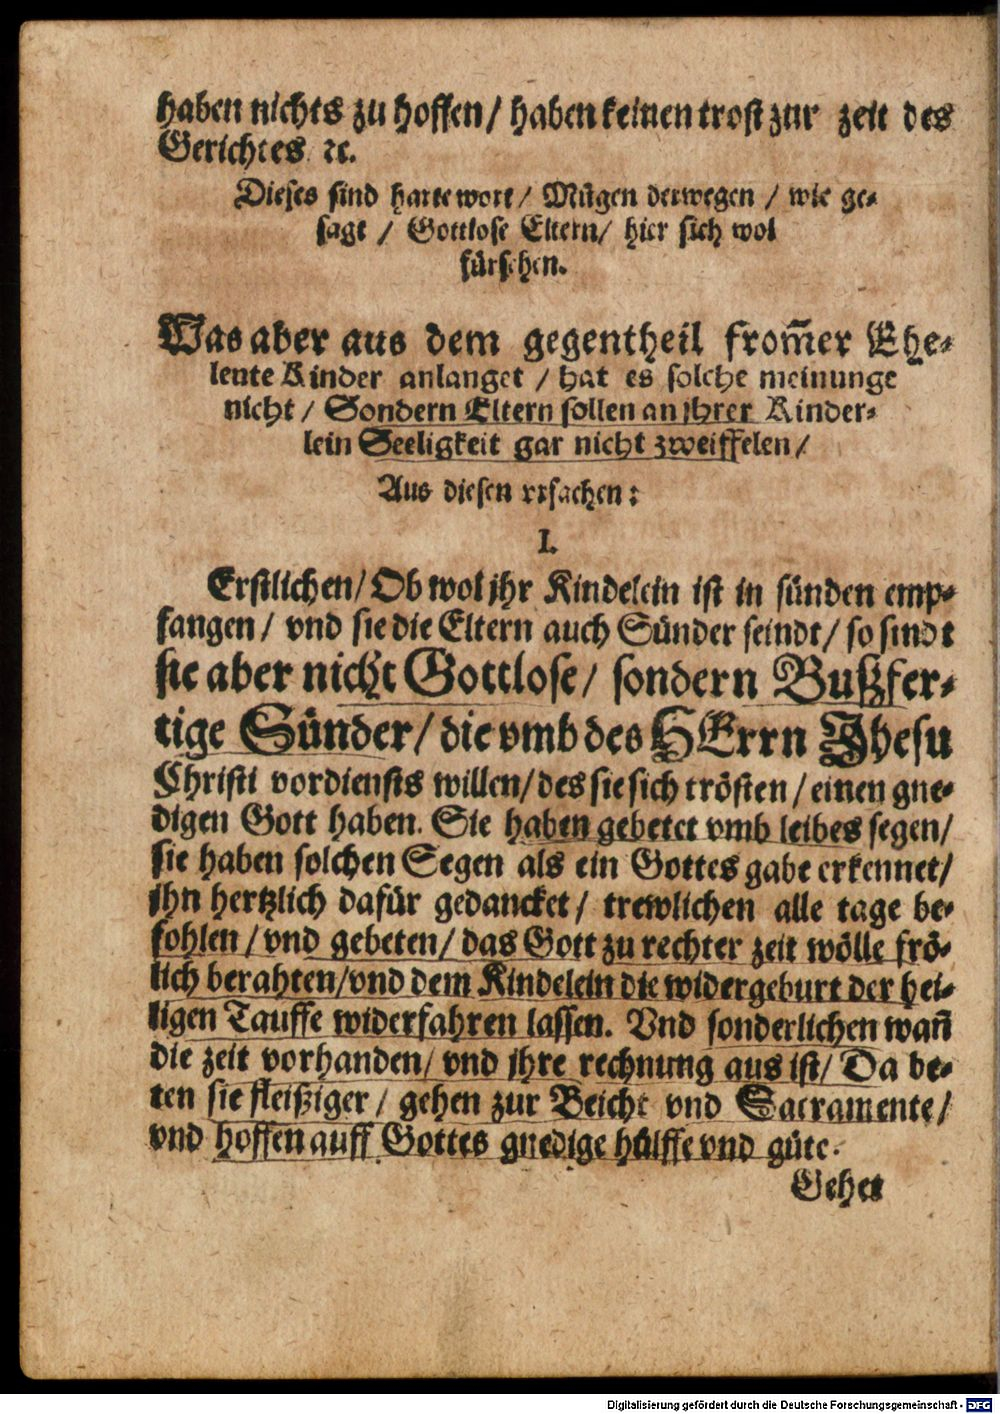 haben nichts zu hoffen / haben keinen trost zur zeit des
Gerichtes ꝛc.
Dieses sind harte wort / Mügen derwegen / wie ge-
sagt / Gottlose Eltern / hier sich wol
fürsehen.
Was aber aus dem gegentheil from̃er Ehe-
leute Kinder anlanget / hat es solche meinunge
nicht / Sondern Eltern sollen an jhrer Kinder-
lein Seeligkeit gar nicht zweiffelen /
Aus diesen vrsachen:
I.
Erstlichen / Ob wol jhr Kindelein ist in sünden emp-
fangen / vnd sie die Eltern auch Sünder seindt / so sindt
sie aber nicht Gottlose / sondern Bußfer-
tige Sünder / die vmb des HErrn Jhesu
Christi vordiensts willen / des sie sich trösten / einen gne-
digen Gott haben. Sie haben gebetet vmb leibes segen /
sie haben solchen Segen als ein Gottes gabe erkennet /
jhn hertzlich dafür gedancket / trewlichen alle tage be-
fohlen / vnd gebeten / das Gott zu rechter zeit wölle frö-
lich berahten / vnd dem Kindelein die widergeburt der hei-
ligen Tauffe widerfahren lassen. Vnd sonderlichen wañ
die zeit vorhanden / vnd jhre rechnung aus ist / Da be-
ten sie fleißiger / gehen zur Beicht vnd Sacramente /
vnd hoffen auff Gottes gnedige hülffe vnd güte.
Gehet
Digitalisierung gefördert durch die Deutsche Forschungsgemeinschaft - DFG